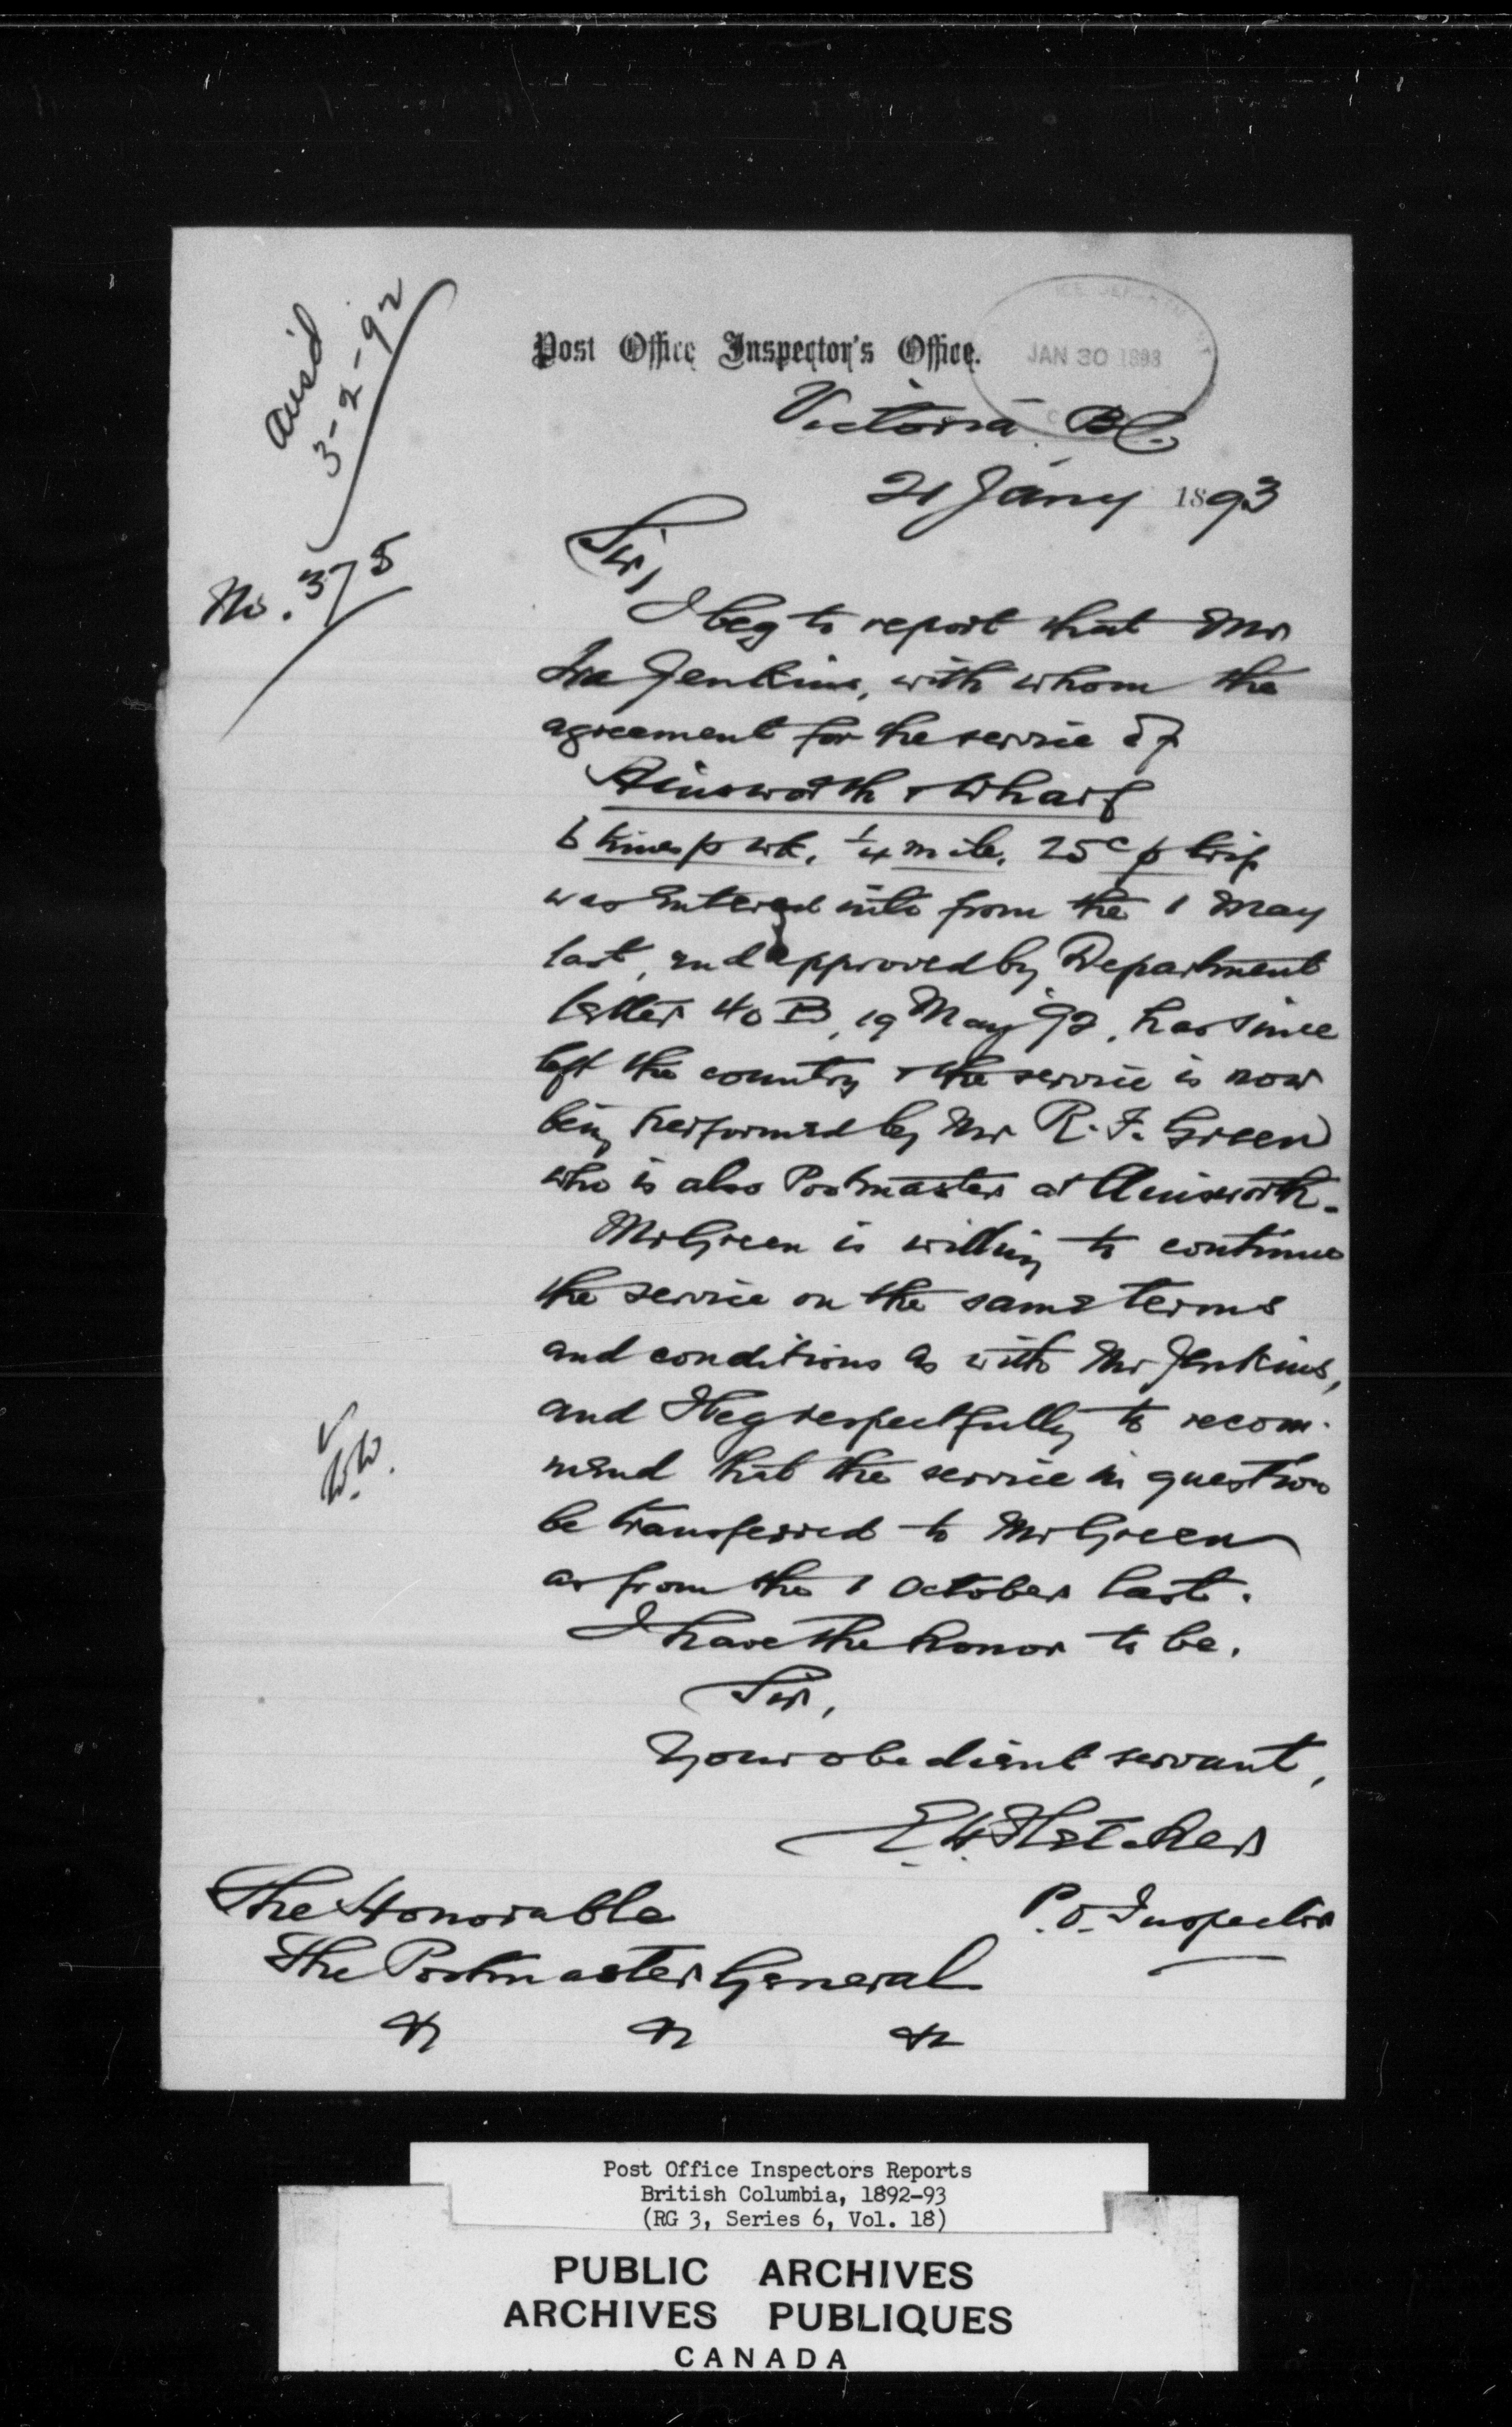 Ans'd
3-2-92
No. 375
Post Office Inspector's Office.
JAN 30 1893
Victoria BC.
21 Jany 1893
Sir,
I beg to report that Mr
Ira Jenkins, with whom the
agreement for the service of
Ainsworth & Wharf
6 times p wk. ¼ mile. 25c p trip
was entered into from the 1 May
last, and approved by Department
letter 40 B, 19 May 92, has since
left the country & the service is now
being performed by Mr R. F. Green
who is also Postmaster at Ainsworth.
Mr Green is willing to continue
the service on the same terms
and conditions as with Mr Jenkins,
and I beg respectfully to recom-
mend that the service in question
be transferred to Mr Green
as from the 1 October last.
I have the honor to be,
Sir,
Your obedient servant,
E. H. Fletcher
P.O. Inspector
The Honorable
The Postmaster General
&c &c &c
Post Office Inspectors Reports
British Columbia, 1892-93
(RG 3, Series 6, Vol. 18)
PUBLIC ARCHIVES
ARCHIVES PUBLIQUES
CANADA